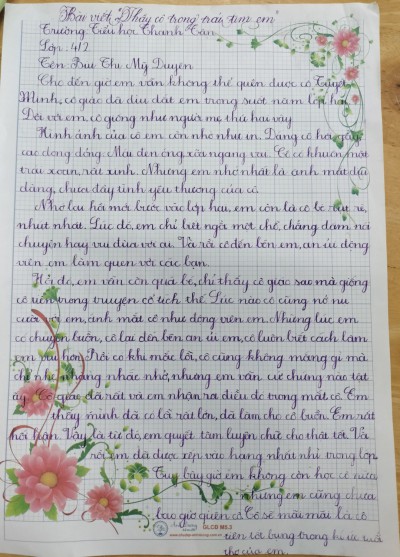 Bài viết "Thầy cô trong trái tim em
Trường Tiểu học Thanh Tân
Lớp: 4/2
Tên Bùi Thị Mỹ Duyên
Cho đến giờ em vẫn không thể quên được cô Tuyết
Minh, cô giáo đã dìu dắt em trong suốt năm lớp hai.
Đối với em, cô giống như người mẹ thứ hai vậy.
Hình ảnh của cô em còn nhớ như in. Dáng cô hơi gầy,
cao dong dỏng. Mái đen óng xõa ngang vai. Cô có khuôn mặt
trái xoan, rất xinh. Nhưng em nhớ nhất là ánh mắt dịu
dàng, chứa đầy tình yêu thương của cô.
Nhớ lại hồi mới bước vào lớp hai, em còn là cô bé rụt rè,
nhút nhát. Lúc đó, em chỉ biết ngồi một chỗ, chẳng dám nói
chuyện hay vui đùa với ai. Và rồi cô đến bên em, an ủi, động
viên em làm quen với các bạn.
Hồi đó, em vẫn còn quá bé, chỉ thấy cô giáo sao mà giống
cô tiên trong truyện cổ tích thế. Lúc nào cô cũng nở nụ
cười với em, ánh mắt cô như động viên em. Những lúc em
có chuyện buồn, cô lại đến bên an ủi em, cô luôn biết cách làm
em vui hơn. Rồi có khi mắc lỗi, cô cũng không mắng gì mà
chỉ nhẹ nhàng nhắc nhở, nhưng em vẫn cứ chứng nào tật
ấy. Cô giáo đã rất và em nhận ra điều đó trong mắt cô. Em
thấy mình đã có lỗi rất lớn, đã làm cho cô buồn. Em rất
hối hận. Vậy là từ đó, em quyết tâm luyện chữ cho thật tốt. Và
rồi em đã được xếp vào hàng nhất nhì trong lớp.
Tuy bây giờ em không còn học cô nữa
nhưng em cũng chưa
bao giờ quên cô. Cô sẽ mãi mãi là cô
tiên tốt bụng trong kí ức tuổi
thơ của em.
ULCD MS.3